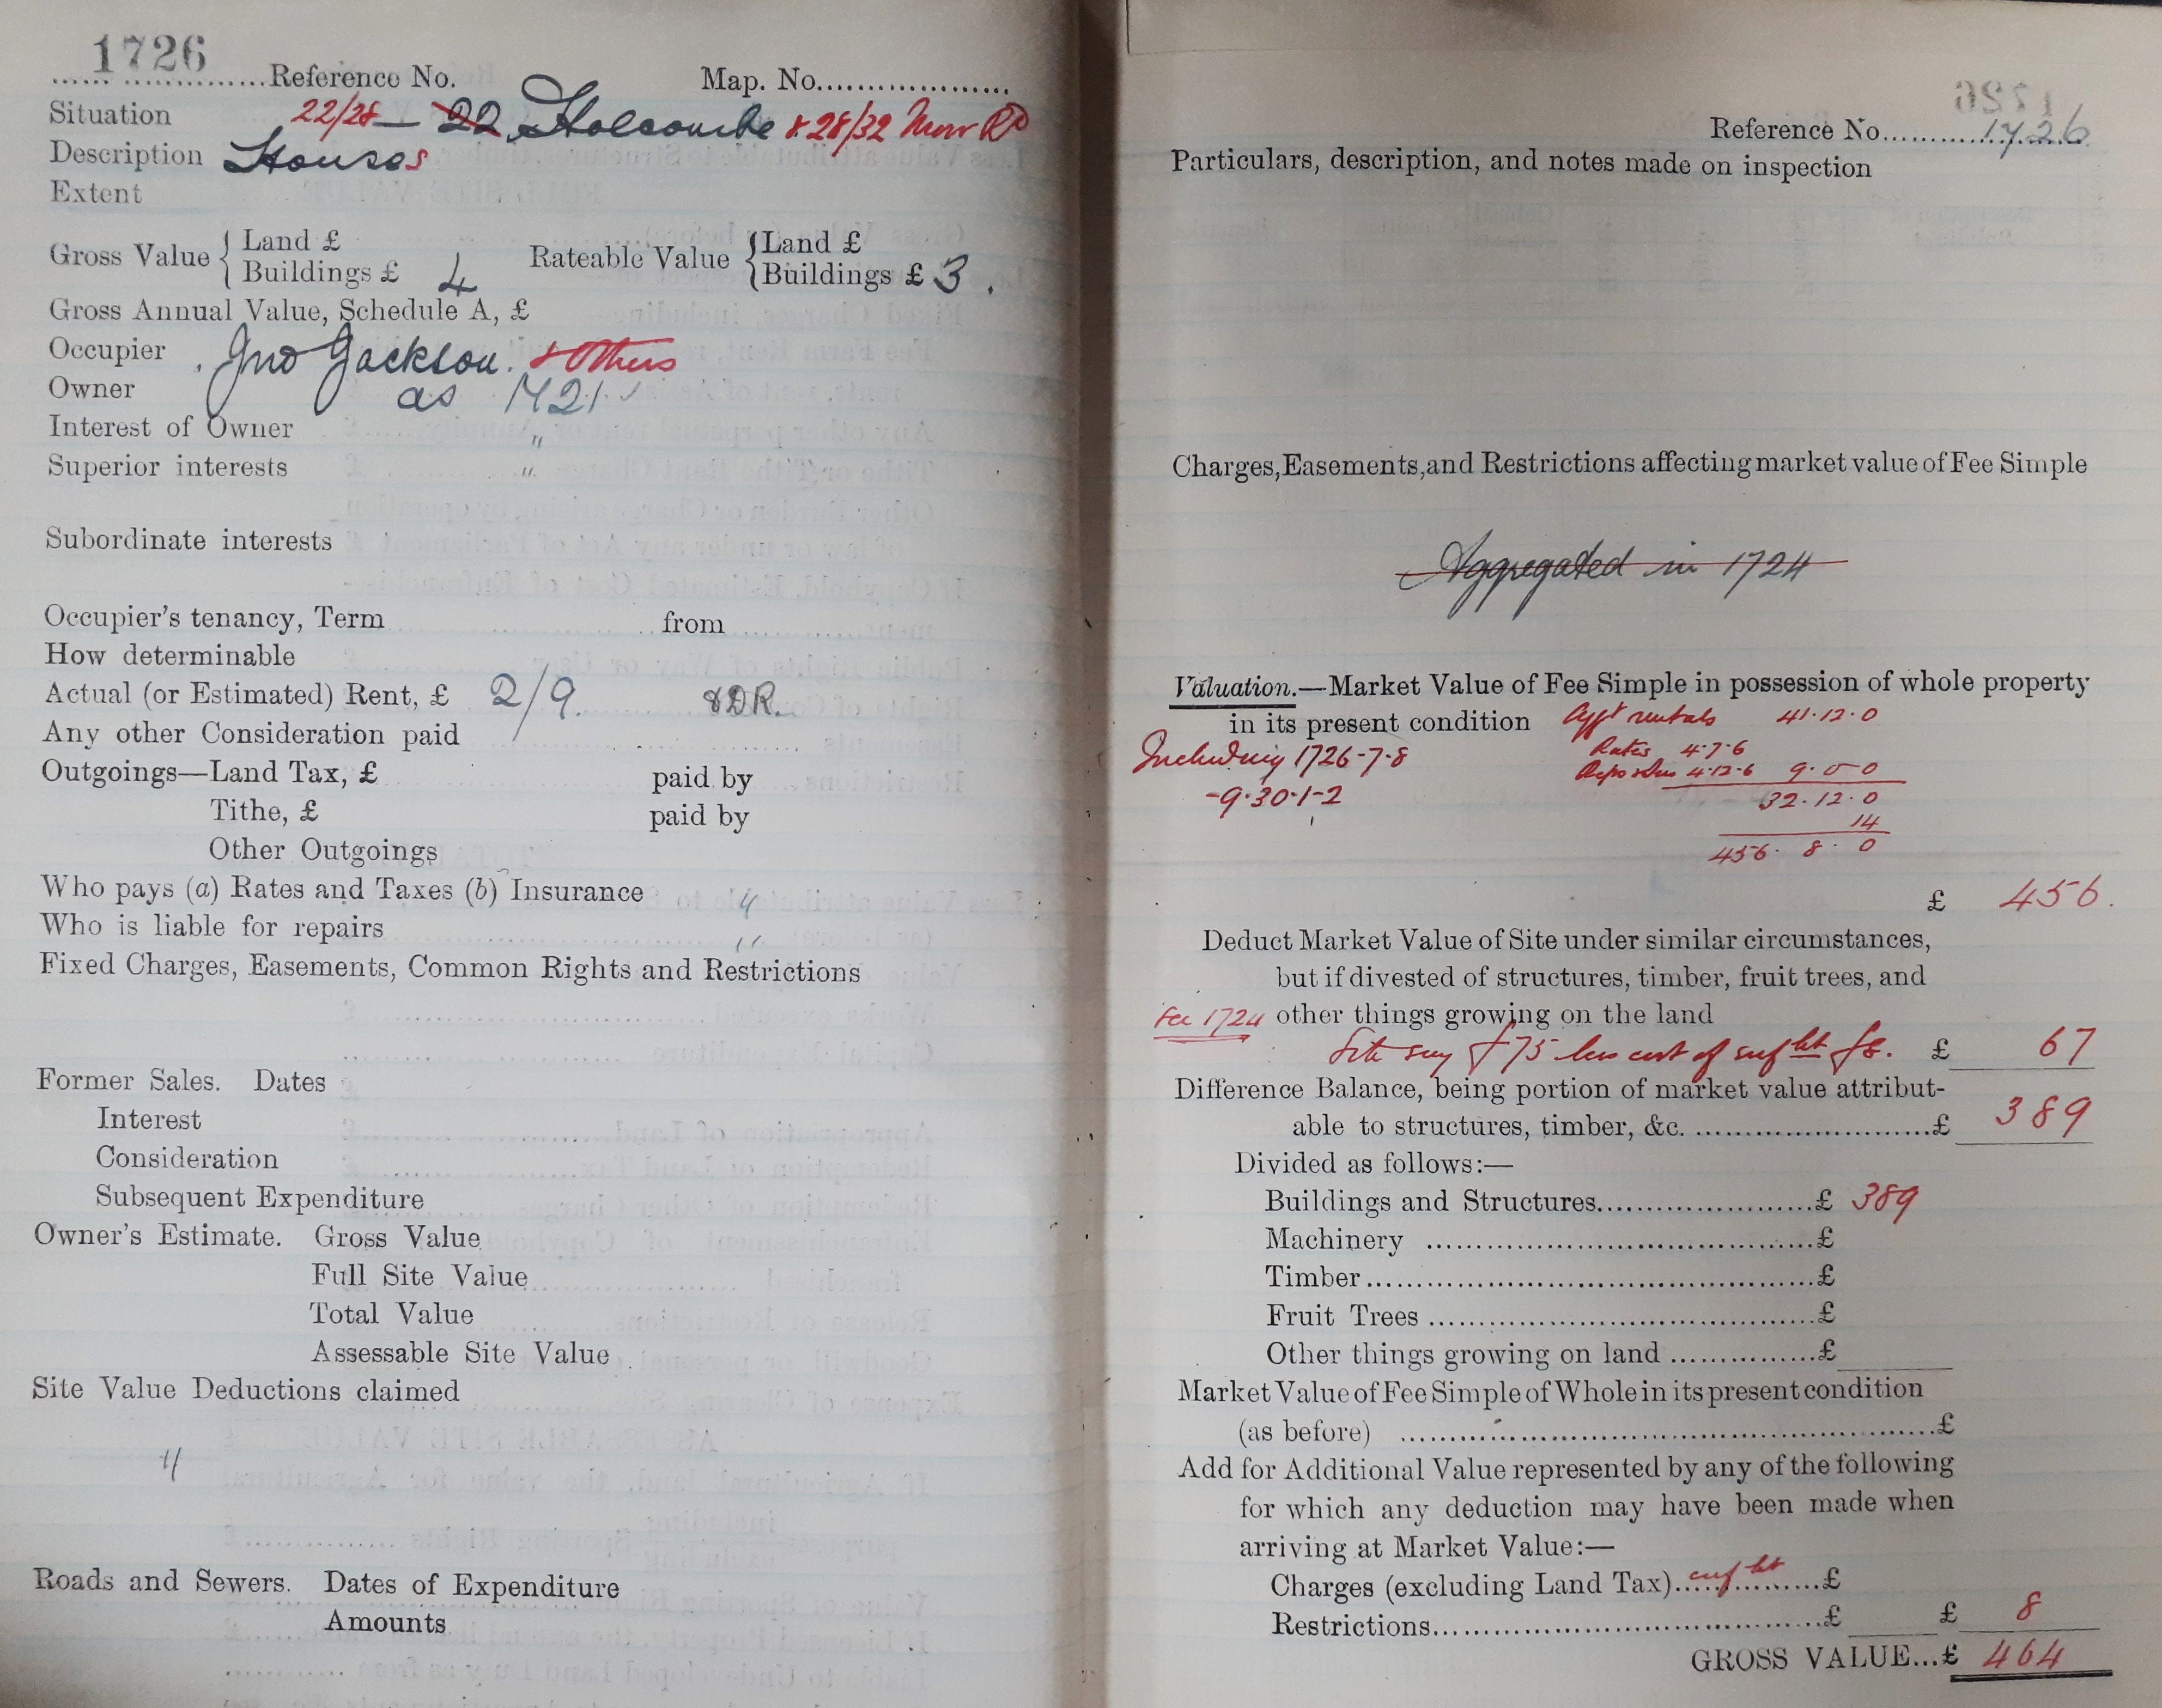 1726
Reference No. Map. No.
Situation 22/28 — 22 Holcombe & 28/32 Moor Rd
Description Houses
Extent
Gross Value { Land £ Rateable Value { Land £
Buildings £ 4 Buildings £ 3.
Gross Annual Value, Schedule A, £
Occupier Jno Jackson. & Others
Owner as 1721
Interest of Owner "
Superior interests "
Subordinate interests
Occupier's tenancy, Term from
How determinable
Actual (or Estimated) Rent, £ 2/9.
Any other Consideration paid
Outgoings—Land Tax, £ paid by
Tithe, £ paid by
Other Outgoings
Who pays (a) Rates and Taxes (b) Insurance "
Who is liable for repairs "
Fixed Charges, Easements, Common Rights and Restrictions
Former Sales. Dates
Interest
Consideration
Subsequent Expenditure
Owner's Estimate. Gross Value
Full Site Value
Total Value
Assessable Site Value
Site Value Deductions claimed
"
Roads and Sewers. Dates of Expenditure
Amounts
Reference No. 1726
Particulars, description, and notes made on inspection
Charges, Easements, and Restrictions affecting market value of Fee Simple
Aggregated in 1724
Valuation.—Market Value of Fee Simple in possession of whole property
in its present condition
Including 1726-7-8
-9-30-1-2
rentals 41.12.0
Rates 4.7.6
4.12.6 9.0.0
32.12.0
14
456. 8. 0
£ 456.
Deduct Market Value of Site under similar circumstances,
but if divested of structures, timber, fruit trees, and
See 1724 other things growing on the land
Site say £75 less cost of £8. £ 67
Difference Balance, being portion of market value attribut-
able to structures, timber, &c. £ 389
Divided as follows:—
Buildings and Structures £ 389
Machinery £
Timber £
Fruit Trees £
Other things growing on land £
Market Value of Fee Simple of Whole in its present condition
(as before) £
Add for Additional Value represented by any of the following
for which any deduction may have been made when
arriving at Market Value:—
Charges (excluding Land Tax) £
Restrictions £ £ 8
GROSS VALUE...£ 464